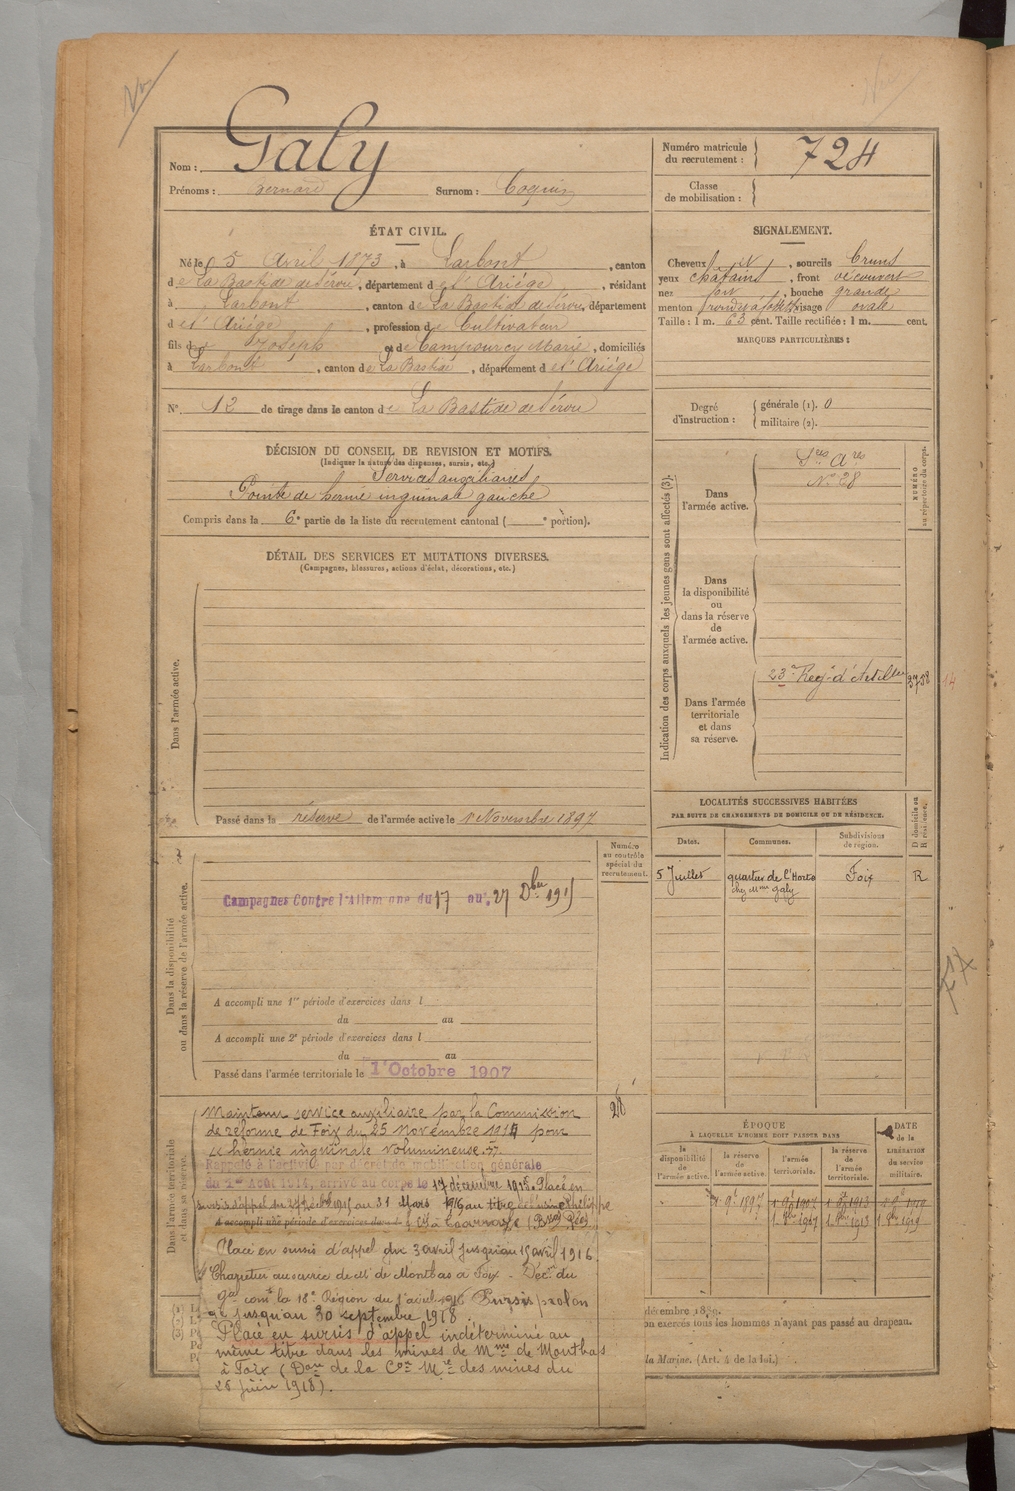 Nom : Galy
Prénoms : Bernard Surnom : Coquin
Numéro matricule
du recrutement : 724
Classe
de mobilisation :
ÉTAT CIVIL.
Né le 5 Avril 1873, à Larbont, canton
de La Bastide de Sérou, département de l'Ariége, résidant
à Larbont, canton de La Bastide de Sérou, département
de l'Ariége, profession de Cultivateur
fils de Joseph et de Marie, domiciliés
à Larbont, canton de La Bastide, département de l'Ariége
N° 12 de tirage dans le canton de La Bastide de Sérou
SIGNALEMENT.
Cheveux et, sourcils bruns
yeux châtains, front découvert
nez, bouche grande
menton rond, visage ovale
Taille : 1 m. 63 cent. Taille rectifiée : 1 m. cent.
MARQUES PARTICULIÈRES :
Degré
d'instruction :
générale (1). 0
militaire (2).
DÉCISION DU CONSEIL DE REVISION ET MOTIFS.
(Indiquer la nature des dispenses, sursis, etc.)
Services auxiliaires
Pointe de hernie inguinale gauche
Compris dans la 6e partie de la liste du recrutement cantonal ( e portion).
DÉTAIL DES SERVICES ET MUTATIONS DIVERSES.
(Campagnes, blessures, actions d'éclat, décorations, etc.)
Dans l'armée active.
Passé dans la réserve de l'armée active le 1 Novembre 1897
Indication des corps auxquels les jeunes gens sont affectés (3).
NUMÉRO
au répertoire du corps.
Dans
l'armée active.
Sces Ares
N° 28
Dans
la disponibilité
ou
dans la réserve
de
l'armée active.
Dans l'armée
territoriale
et dans
sa réserve.
23e Reg. d'Artillie
3758
14
LOCALITÉS SUCCESSIVES HABITÉES
PAR SUITE DE CHANGEMENTS DE DOMICILE OU DE RÉSIDENCE.
D domicile ou
R résidence.
Dates. Communes. Subdivisions
de région.
5 Juillet quartier de l'Horto Foix R
chez Mme Galy
Dans la disponibilité
ou dans la réserve de l'armée active.
Numéro
au contrôle
spécial du
recrutement.
Campagnes Contre l'Allemagne du 17 au 27 Dbre 1915
A accompli une 1re période d'exercices dans l
du au
A accompli une 2e période d'exercices dans l
du au
Passé dans l'armée territoriale le 1er Octobre 1907
Dans l'armée territoriale
et dans sa réserve.
Maintenu service auxiliaire par la Commission
de réforme de Foix du 25 Novembre 1914 pour
hernie inguinale volumineuse.
Rappelé à l'activité par décret de mobilisation générale
du 1er Août 1914, arrivé au corps le 17 décembre 1915. Placé en
sursis d'appel du 27 au 31 Mars 1916 au titre Philippe
A accompli une période d'exercices dans l
Placé en sursis d'appel du 3 avril jusqu'au 15 avril 1916.
Charretier au service de M. de Monthas à Foix - Décon du
gal comt la 18e Région du 1 avril 1916 Sursis prolon
gé jusqu'au 30 septembre 1918.
Placé en sursis d'appel indéterminé au
même titre dans les mines de Mme de Monthas
à Foix ( de la des mines du
25 juin 1918).
ÉPOQUE
À LAQUELLE L'HOMME DOIT PASSER DANS
DATE
de la
LIBÉRATION
du service
militaire.
la
disponibilité
de
l'armée active.
la réserve
de
l'armée active.
l'armée
territoriale.
la réserve
de
l'armée
territoriale.
1 9e 1897 1 9e 1907 1 9e 1913 1 9e 1919
1. 8bre 1907 1. 8bre 1913 1. 8bre 1919
décembre 1889.
on exercés tous les hommes n'ayant pas passé au drapeau.
la Marine. (Art. 4 de la loi.)